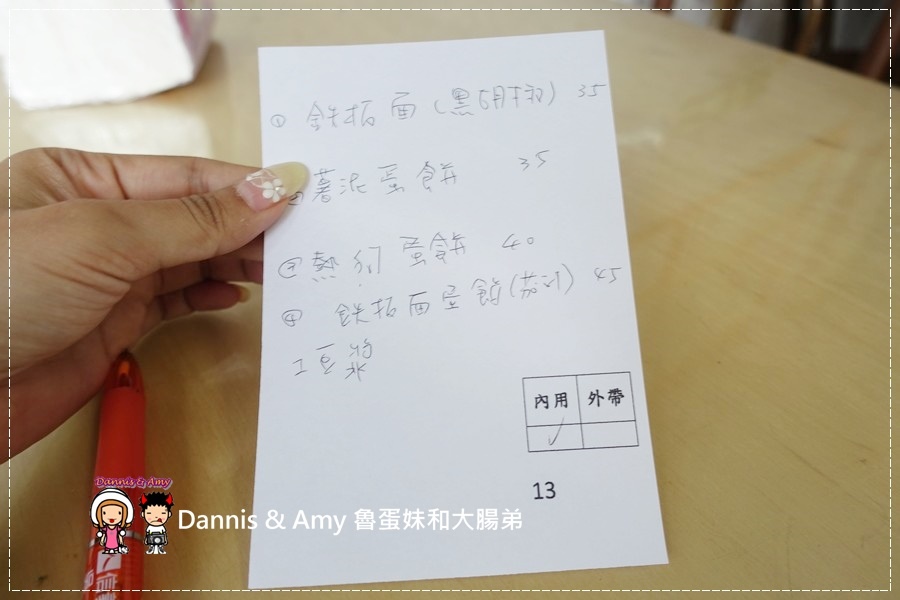 ① 鉄板面(黑胡椒) 35
② 薯泥蛋餅 35
③ 熱狗蛋餅 40
④ 鉄板面蛋餅(茄汁) 45
1豆漿
內用 外帶
✓
13
Dannis & Amy
Dannis & Amy 魯蛋妹和大腸弟